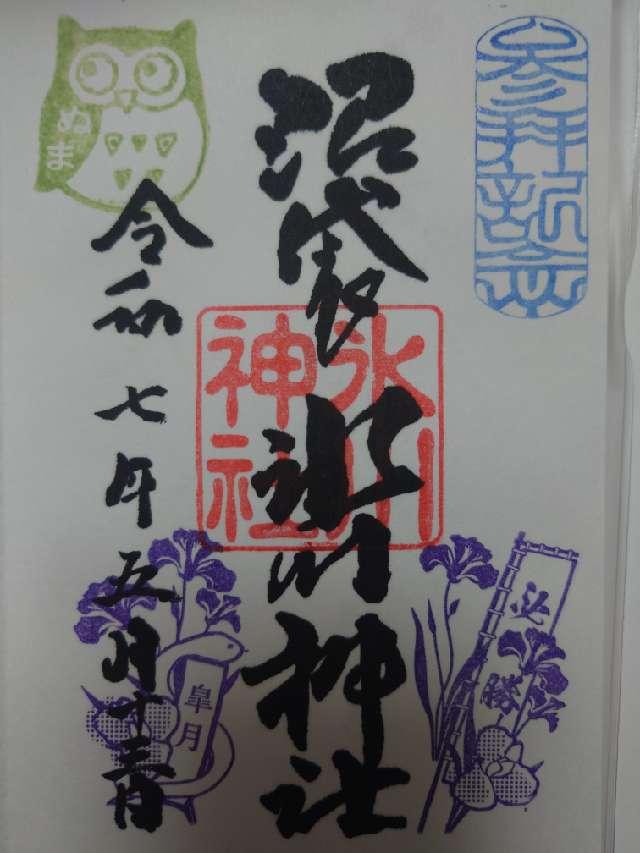 参拝記念
沼袋氷川神社
氷川
神社
必勝
ぬま
令和七年五月十三日
皐月